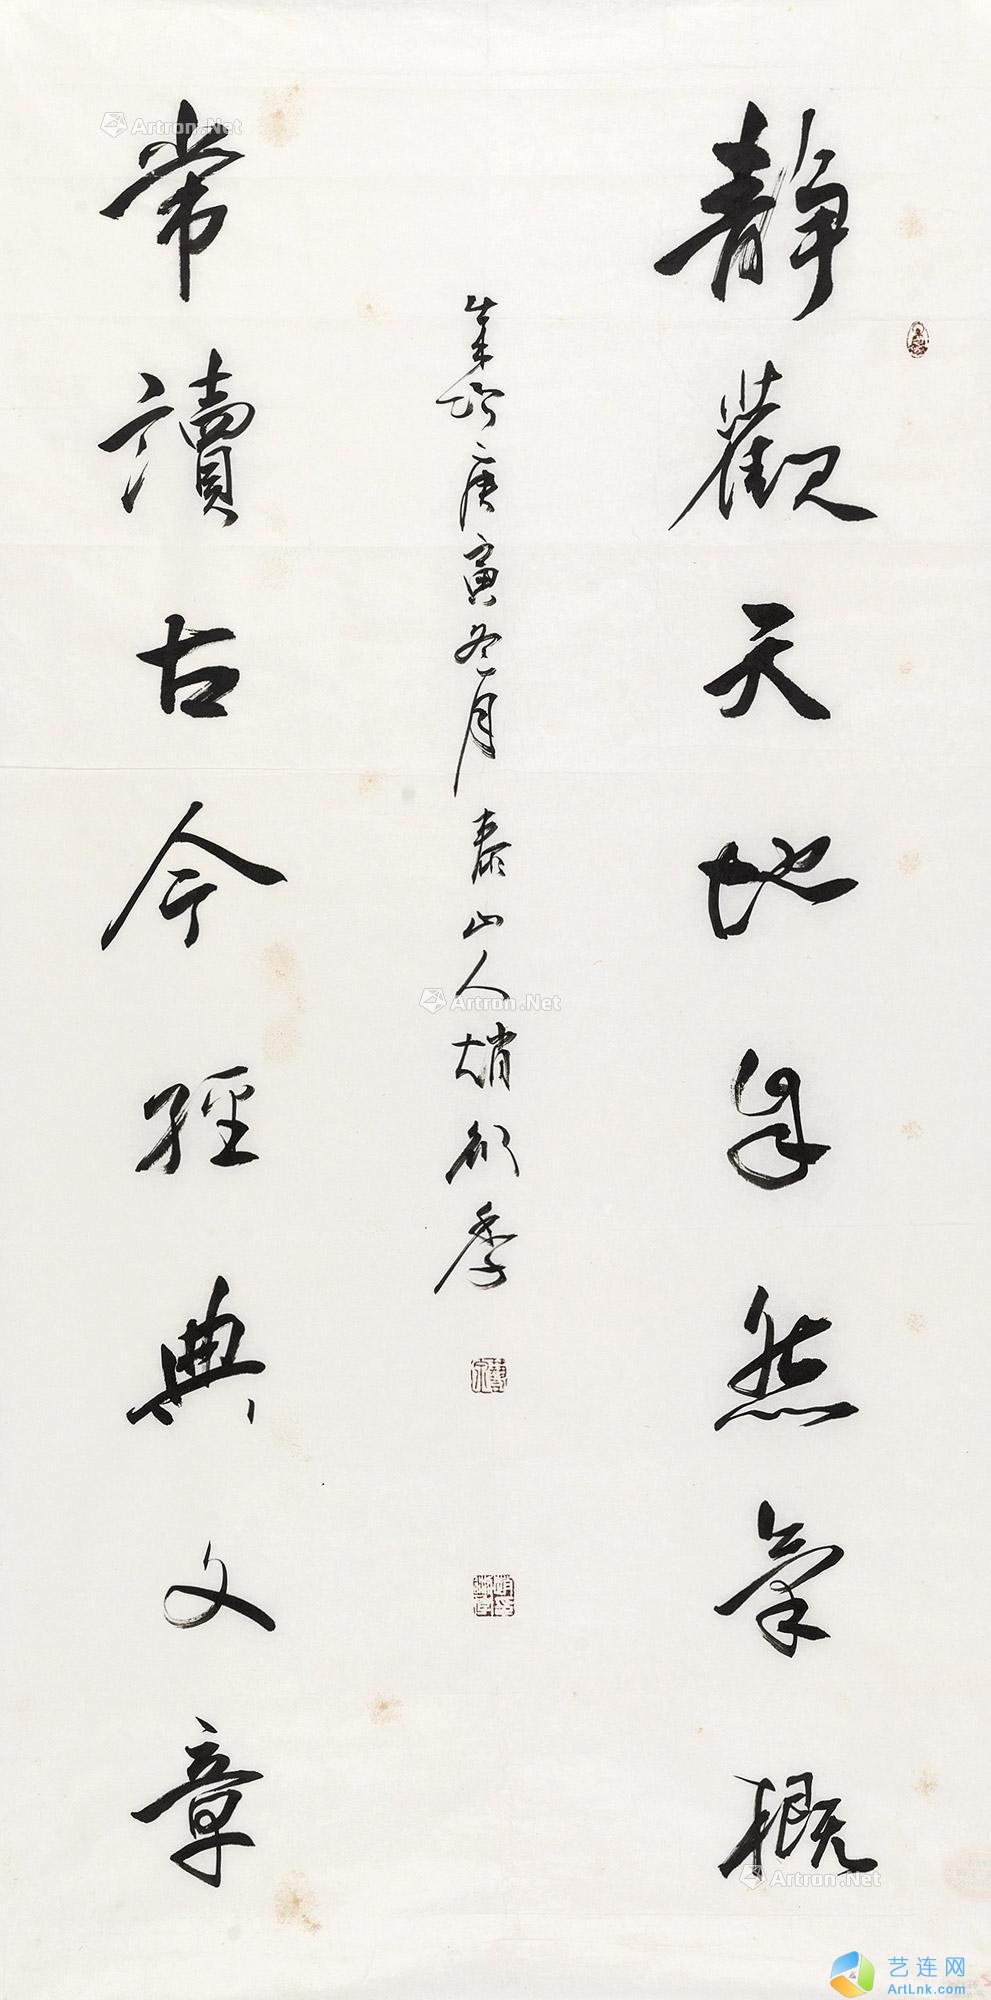 靜觀天地自然氣概
庚寅冬月泰山人趙
常讀古今經典文章
Artron.Net
Artron.Net
Artron.Net
艺连网
ArtLnk.com